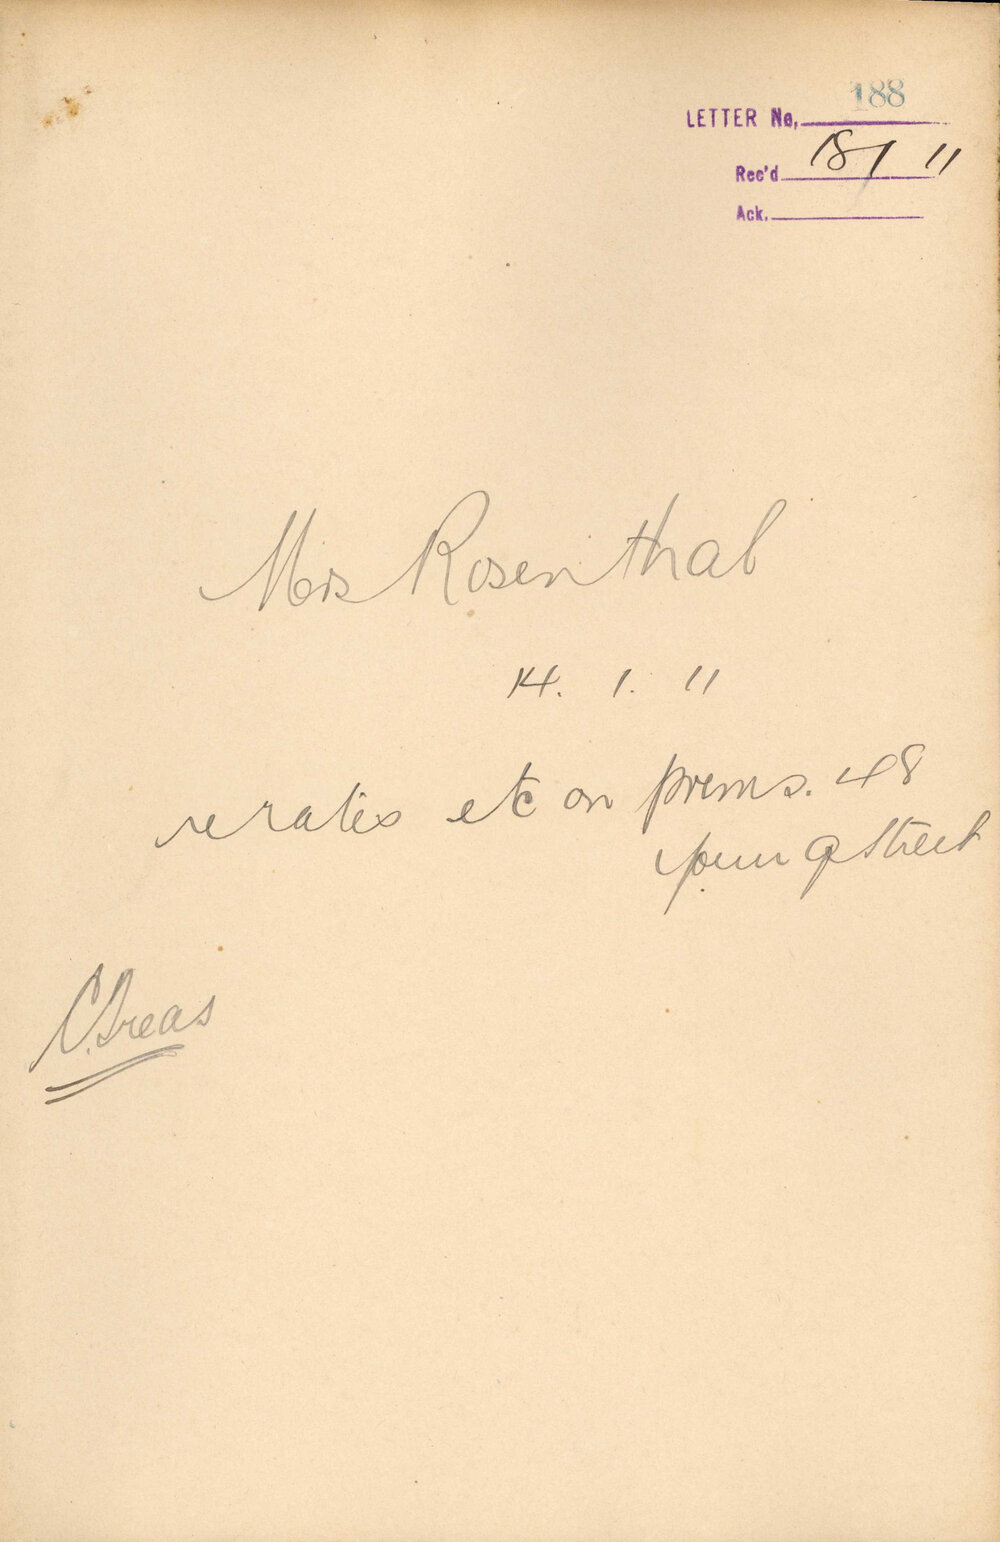 188
LETTER No,
Rec'd 18/1 11
Ack.
Mrs Rosenthal
14. 1. 11
re rates etc on prems. 48
Young Street
C. Treas